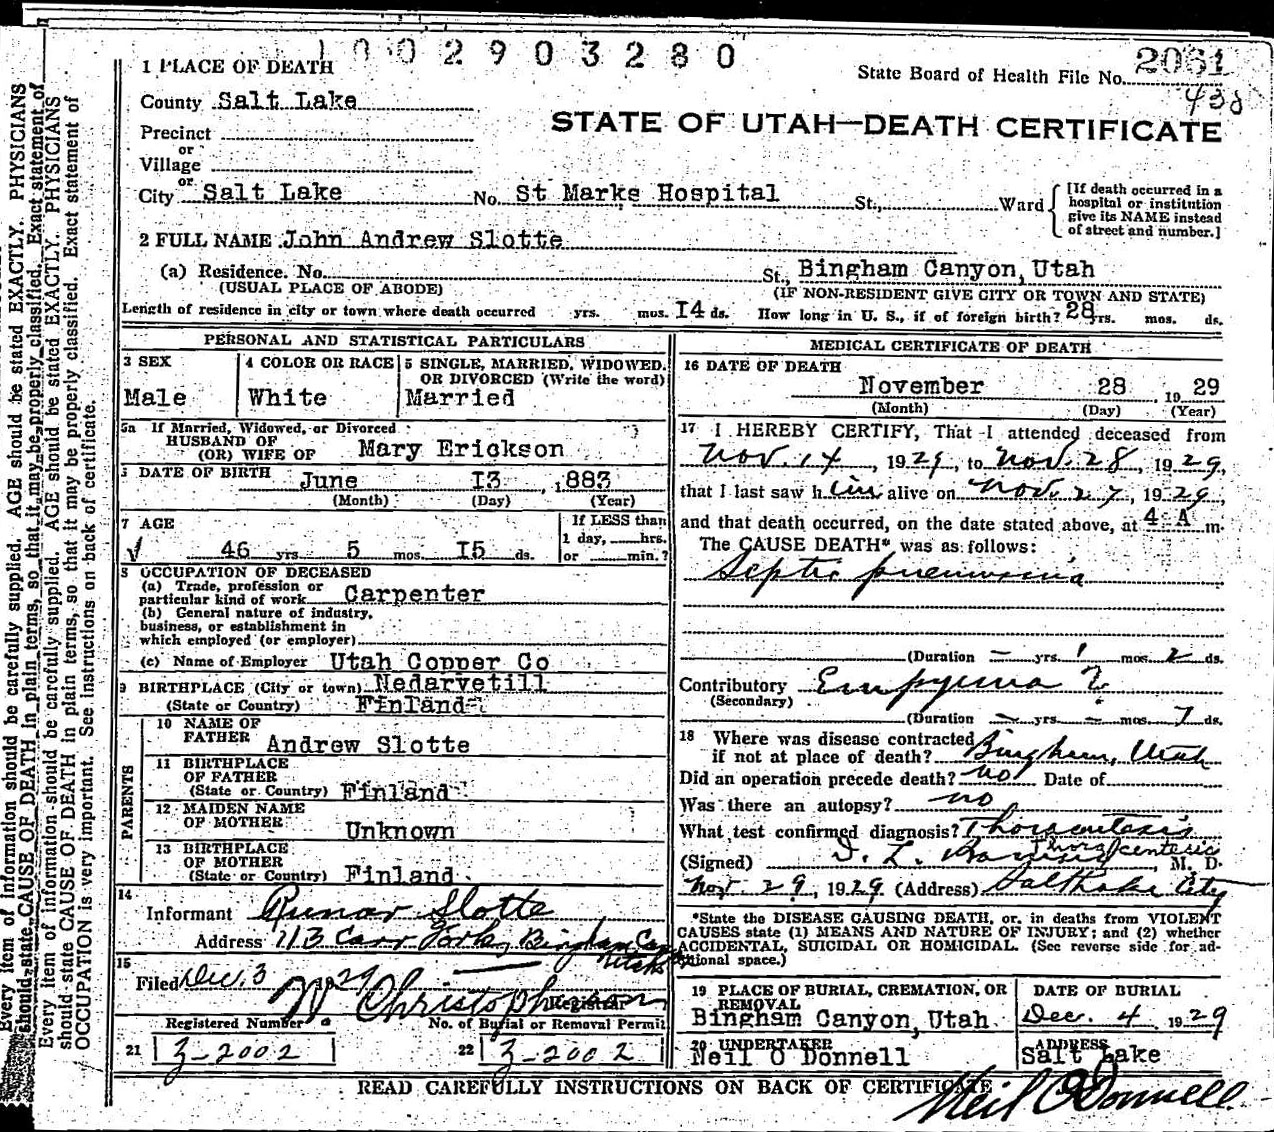 1002903280
2061
State Board of Health File No.
438
1 PLACE OF DEATH
County Salt Lake
STATE OF UTAH—DEATH CERTIFICATE
Precinct
or
Village
or
City Salt Lake No. St Marks Hospital St., Ward
[If death occurred in a hospital or institution give its NAME instead of street and number.]
2 FULL NAME John Andrew Slotte
(a) Residence. No. St., Bingham Canyon, Utah
(USUAL PLACE OF ABODE) (IF NON-RESIDENT GIVE CITY OR TOWN AND STATE)
Length of residence in city or town where death occurred yrs. mos. 14 ds. How long in U. S., if of foreign birth? 28 yrs. mos. ds.
PERSONAL AND STATISTICAL PARTICULARS
3 SEX
Male
4 COLOR OR RACE
White
5 SINGLE, MARRIED, WIDOWED, OR DIVORCED (Write the word)
Married
5a If Married, Widowed, or Divorced
HUSBAND OF
(OR) WIFE OF Mary Erickson
DATE OF BIRTH June 13, 1883
(Month) (Day) (Year)
7 AGE
46 yrs 5 mos. 15 ds.
If LESS than
1 day, hrs.
or min.?
8 OCCUPATION OF DECEASED
(a) Trade, profession or
particular kind of work Carpenter
(b) General nature of industry,
business, or establishment in
which employed (or employer)
(c) Name of Employer Utah Copper Co
9 BIRTHPLACE (City or town) Nedarvetill
(State or Country) Finland
PARENTS
10 NAME OF
FATHER Andrew Slotte
11 BIRTHPLACE
OF FATHER
(State or Country) Finland
12 MAIDEN NAME
OF MOTHER Unknown
13 BIRTHPLACE
OF MOTHER
(State or Country) Finland
14
Informant Runar Slotte
Address 113 Carr Fork, Bingham Can
Utah
15
Filed Dec. 3 1929
Christopherson
Registrar
Registered Number No. of Burial or Removal Permit
21 3-2002 22 3-2002
MEDICAL CERTIFICATE OF DEATH
16 DATE OF DEATH
November 28 1929
(Month) (Day) (Year)
17 I HEREBY CERTIFY, That I attended deceased from
Nov. 14, 1929, to Nov. 28, 1929,
that I last saw him alive on Nov. 27, 1929,
and that death occurred, on the date stated above, at 4 A m.
The CAUSE DEATH* was as follows:
Septic pneumonia
(Duration – yrs. 1 mos. 2 ds.
Contributory Empyema ?
(Secondary)
(Duration – yrs. – mos. 7 ds.
18 Where was disease contracted
if not at place of death? Bingham, Utah
Did an operation precede death? no Date of
Was there an autopsy? no
What test confirmed diagnosis? Thoracentesis
Thoracentesis
(Signed) M. D.
Nov. 29, 1929 (Address) Salt Lake City
*State the DISEASE CAUSING DEATH, or, in deaths from VIOLENT
CAUSES state (1) MEANS AND NATURE OF INJURY; and (2) whether
ACCIDENTAL, SUICIDAL OR HOMICIDAL. (See reverse side for ad-
ditional space.)
19 PLACE OF BURIAL, CREMATION, OR
REMOVAL
Bingham Canyon, Utah
DATE OF BURIAL
Dec. 4 1929
20 UNDERTAKER
Neil O Donnell
ADDRESS
Salt Lake
READ CAREFULLY INSTRUCTIONS ON BACK OF CERTIFICATE
Neil O'Donnell
Every item of information should be carefully supplied. AGE should be stated EXACTLY. PHYSICIANS
should state CAUSE OF DEATH in plain terms, so that it may be properly classified. Exact statement of
Every item of information should be carefully supplied. AGE should be stated EXACTLY. PHYSICIANS
should state CAUSE OF DEATH in plain terms, so that it may be properly classified. Exact statement of
OCCUPATION is very important. See instructions on back of certificate.